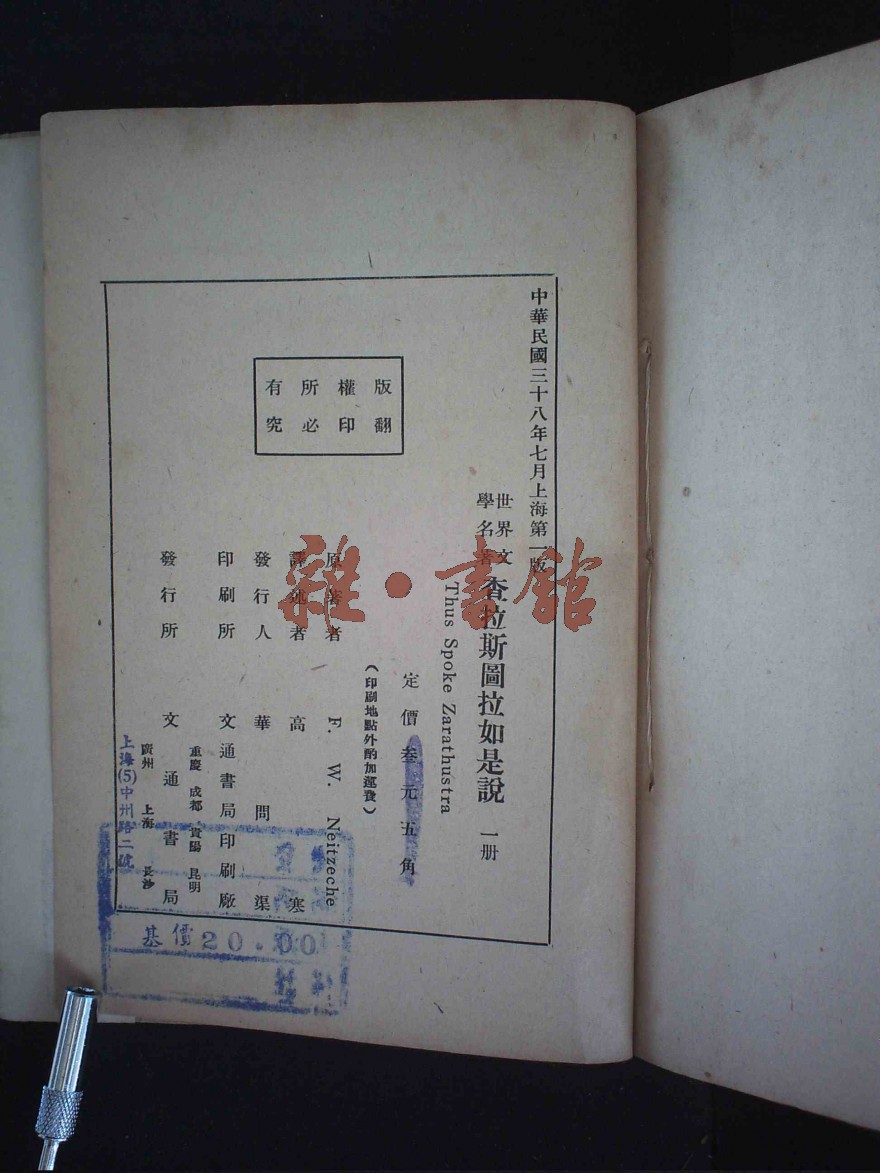 中華民國三十八年七月上海第一版
世界文學名著
查拉斯圖拉如是說 一册
Thus Spoke Zarathustra
定價叁元五角
(印刷地點外酌加運費)
原著者 F. W. Neitzeche
譯述者 高寒
發行人 華問渠
印刷所 文通書局印刷廠
發行所 文通書局
重慶 成都 貴陽 昆明
廣州 上海 長沙
版權所有
翻印必究
上海(5)中州路二號
基價20.00
雜·書館